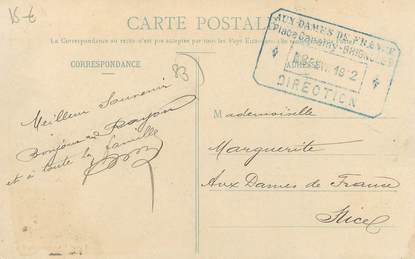 15 €
CARTE POSTALE
La Correspondance au recto n'est pas acceptée par tous les Pays
CORRESPONDANCE
AUX DAMES DE FRANCE
Place
DIRECTION
Meilleur Souvenir
Bonjour au
et à toute la famille
Mademoiselle
Marguerite
Aux Dames de France
Nice